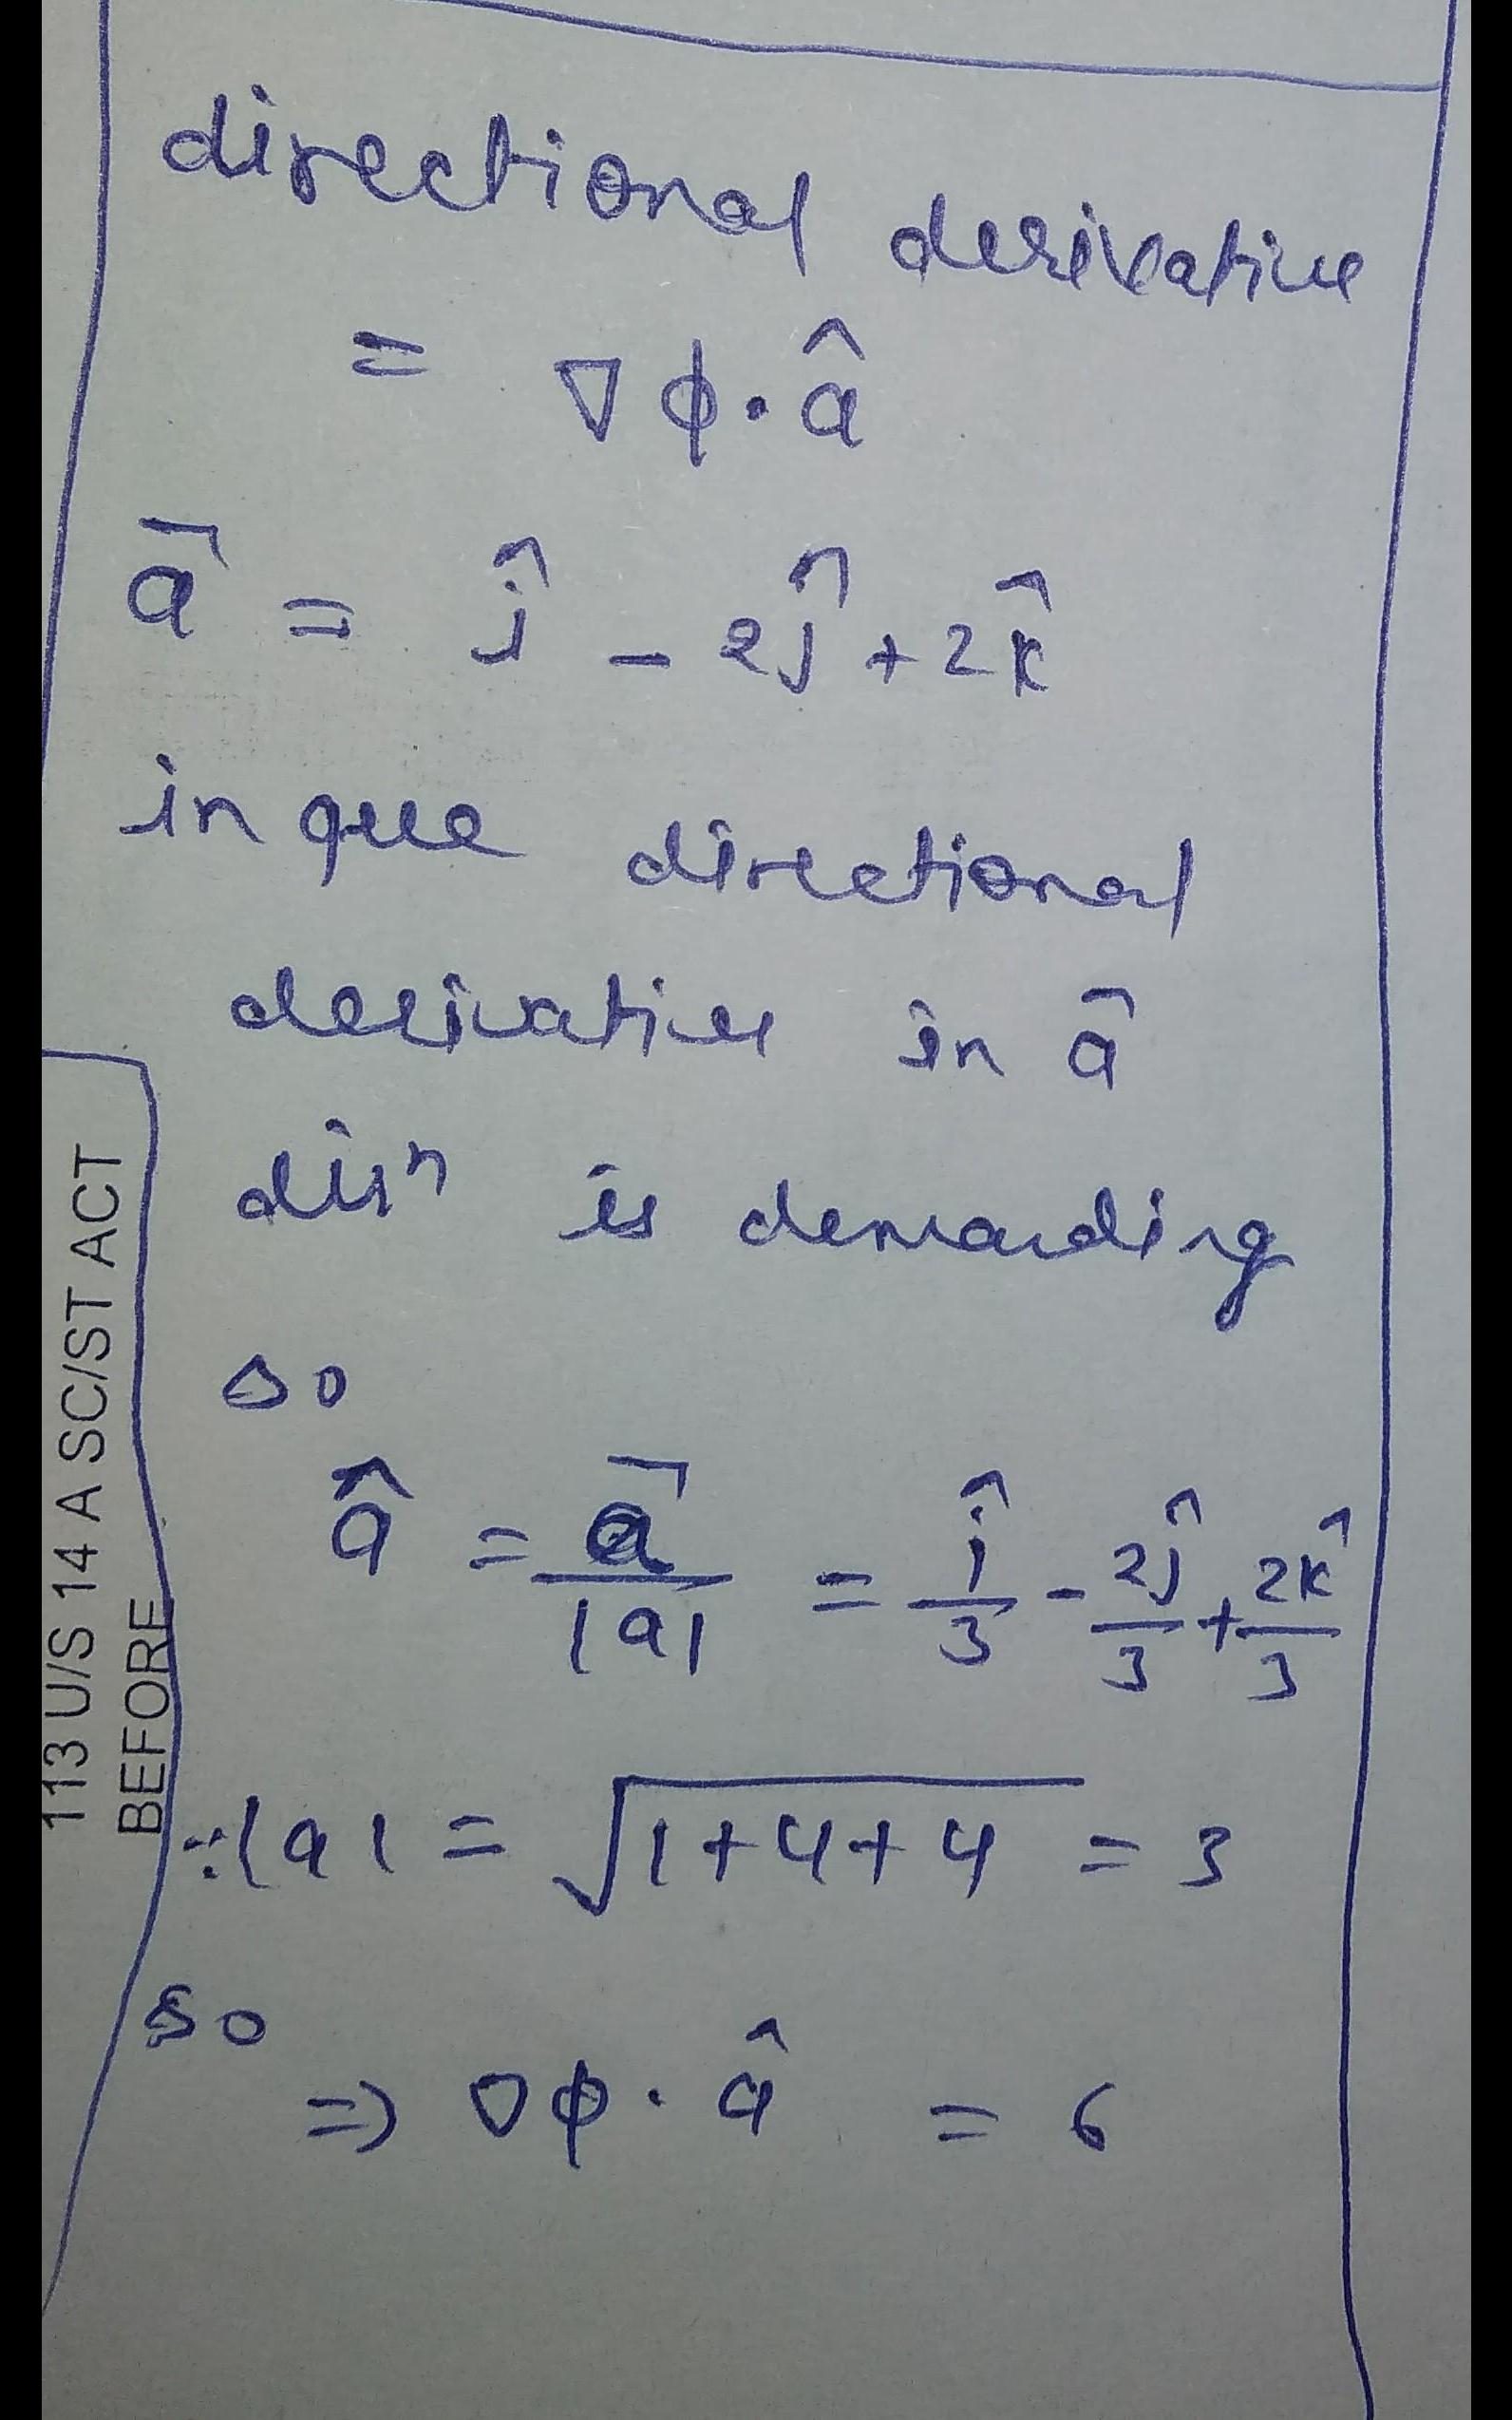 directional derivative
= ∇ϕ·â
a⃗ = î - 2ĵ + 2k̂
in que directional
derivative in a⃗
dirⁿ is demanding
so
â = a⃗/|a| = î/3 - 2ĵ/3 + 2k̂/3
∵ |a| = √1+4+4 = 3
so
⇒ ∇ϕ·â = 6
113 U/S 14 A SC/ST ACT
BEFORE